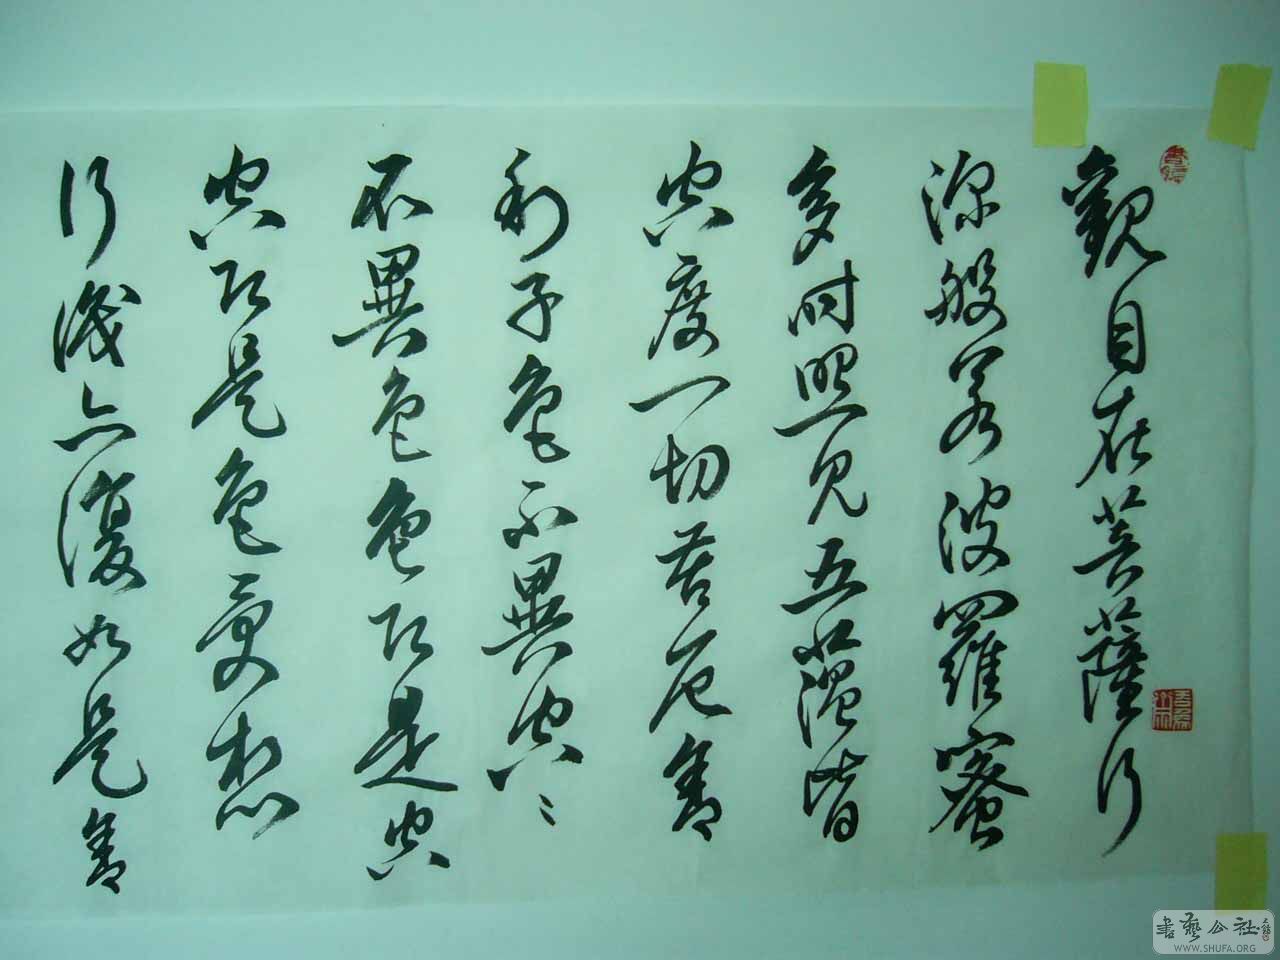 觀自在菩薩行
深般若波羅蜜
多時照見五蘊皆
空度一切苦厄舍
利子色不異空〻
不異色色即是空
空即是色受想
行識亦復如是舍
書藝公社
WWW.SHUFA.ORG